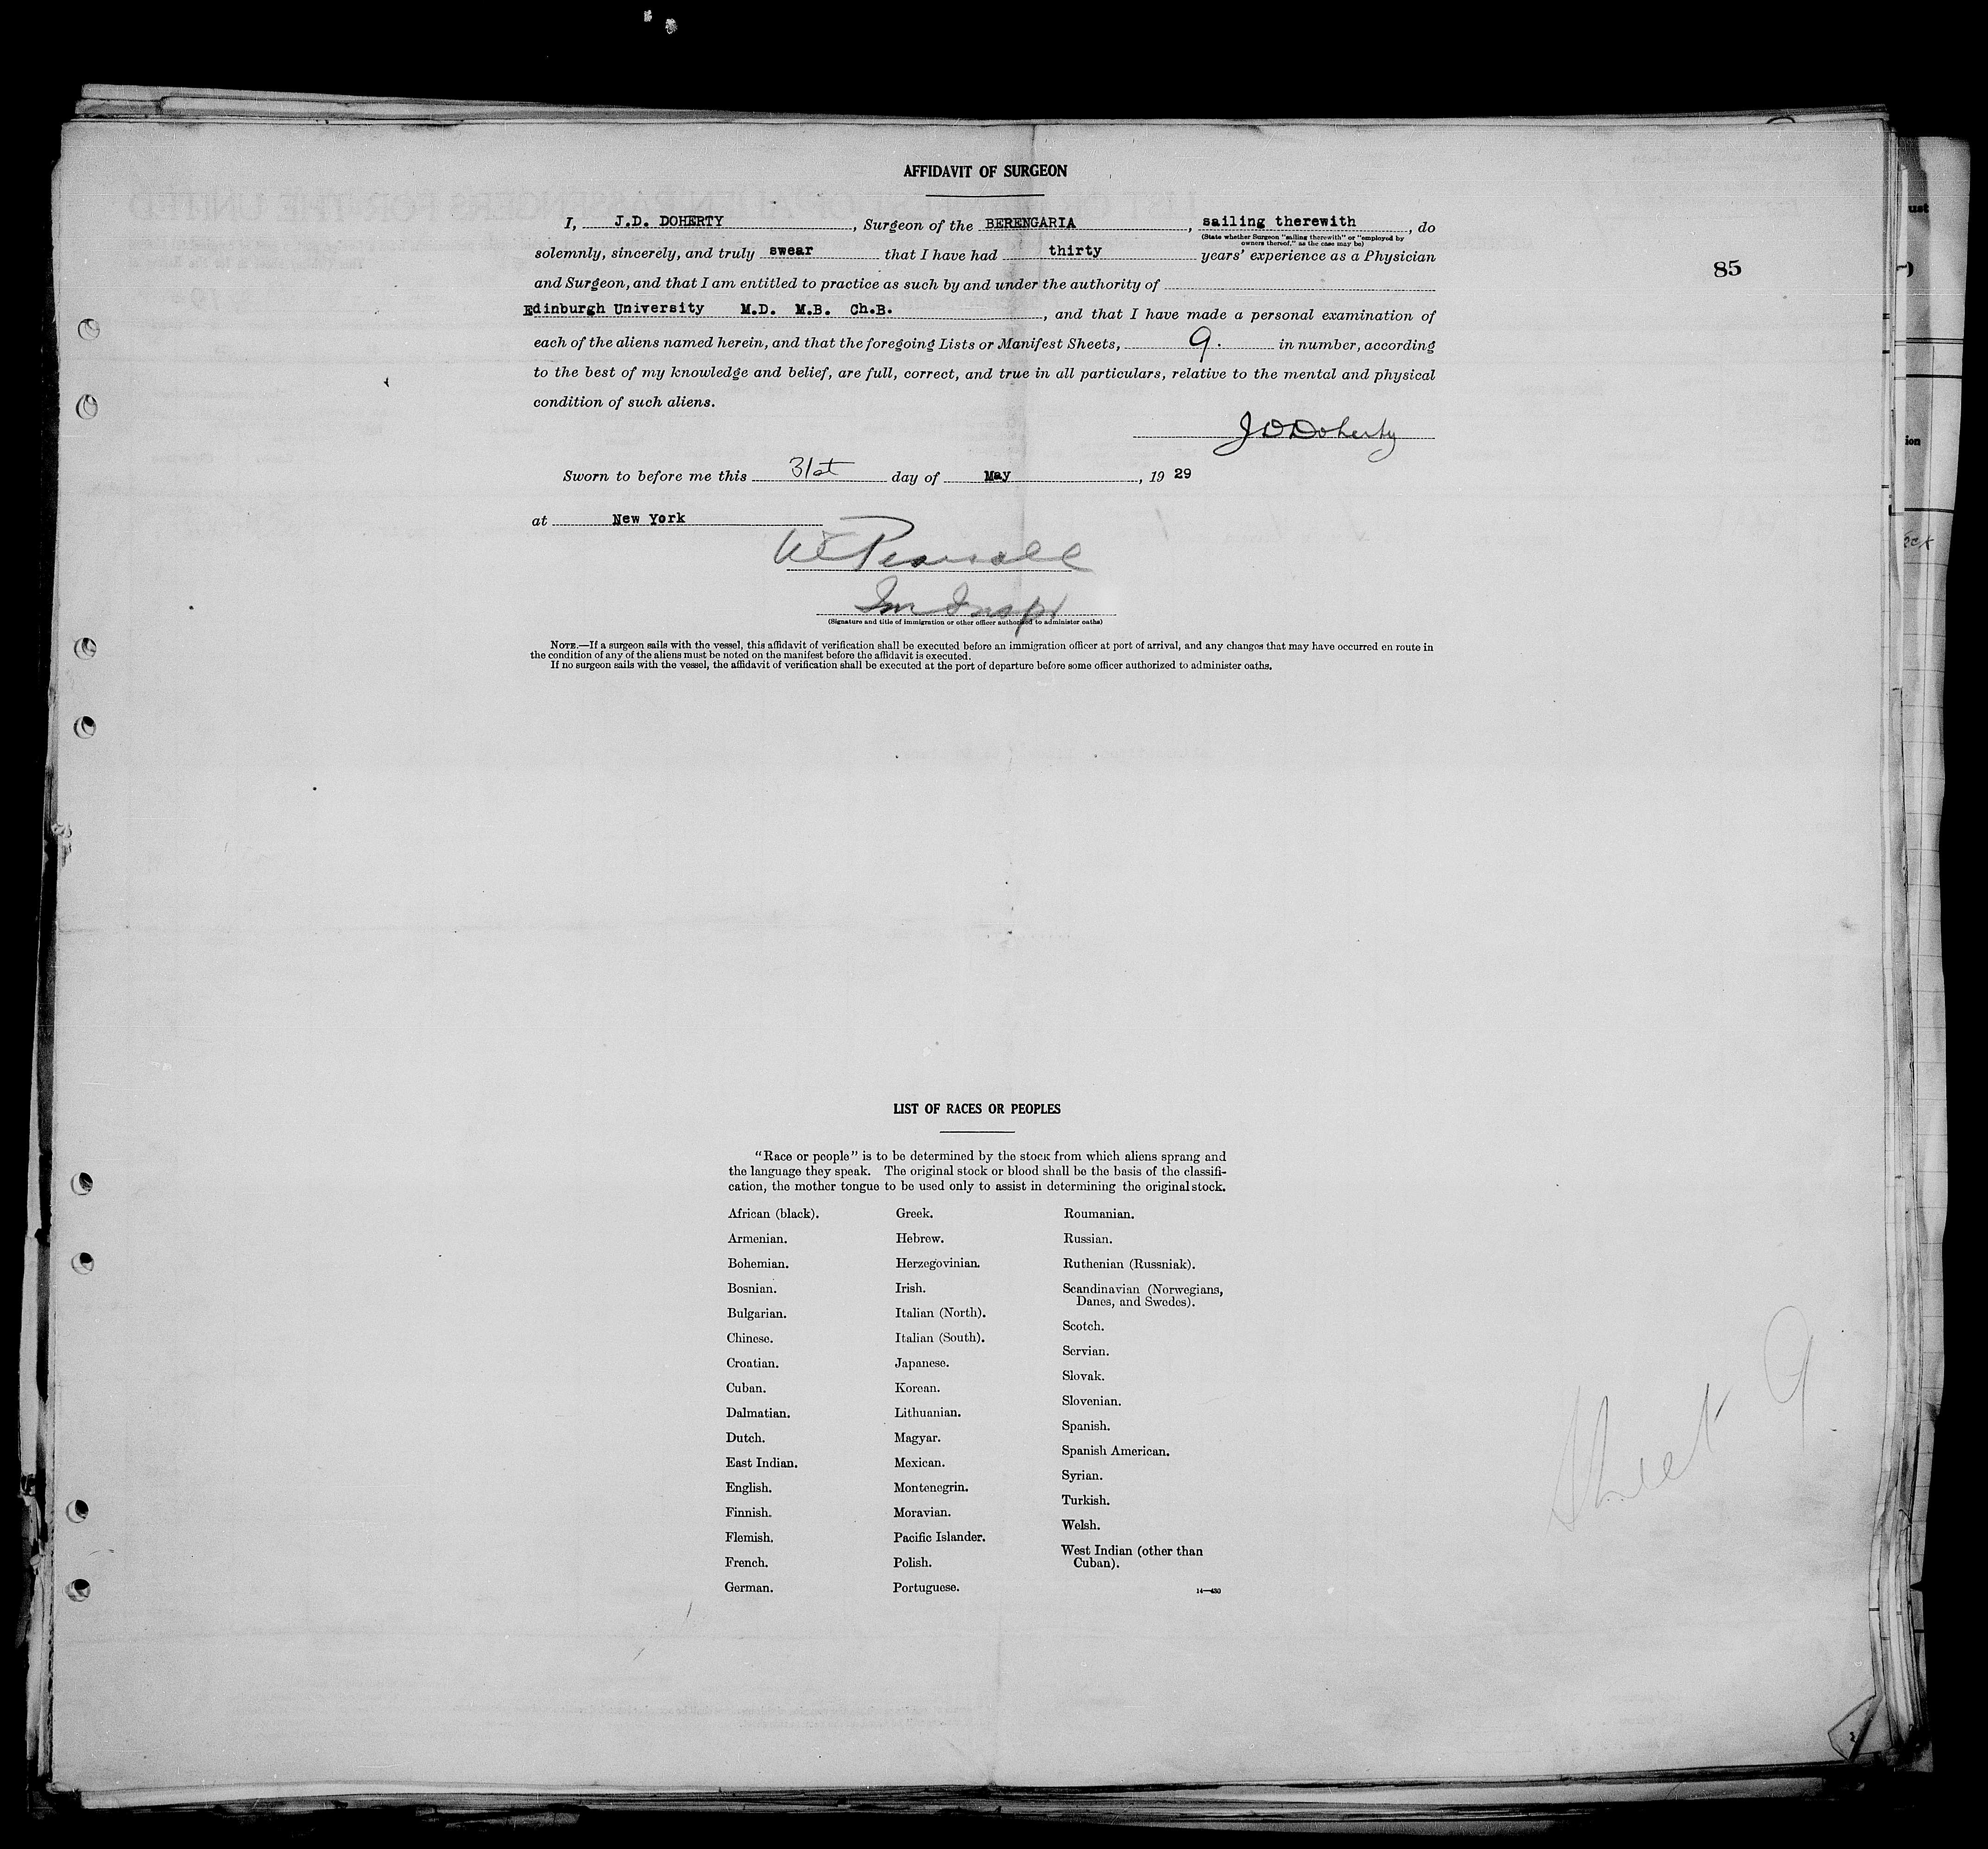 AFFIDAVIT OF SURGEON
I, J.D. DOHERTY, Surgeon of the BERENGARIA, sailing therewith, do
(State whether Surgeon "sailing therewith" or "employed by
owners thereof," as the case may be)
solemnly, sincerely, and truly swear that I have had thirty years' experience as a Physician
85
and Surgeon, and that I am entitled to practice as such by and under the authority of
Edinburgh University M.D. M.B. Ch.B., and that I have made a personal examination of
each of the aliens named herein, and that the foregoing Lists or Manifest Sheets, 9. in number, according
to the best of my knowledge and belief, are full, correct, and true in all particulars, relative to the mental and physical
condition of such aliens.
J D Doherty
Sworn to before me this 31st day of May, 19 29
at New York
Pearsall
Im Inspr
(Signature and title of immigration or other officer authorized to administer oaths)
NOTE.—If a surgeon sails with the vessel, this affidavit of verification shall be executed before an immigration officer at port of arrival, and any changes that may have occurred en route in
the condition of any of the aliens must be noted on the manifest before the affidavit is executed.
If no surgeon sails with the vessel, the affidavit of verification shall be executed at the port of departure before some officer authorized to administer oaths.
LIST OF RACES OR PEOPLES
"Race or people" is to be determined by the stock from which aliens sprang and
the language they speak. The original stock or blood shall be the basis of the classifi-
cation, the mother tongue to be used only to assist in determining the original stock.
African (black).
Armenian.
Bohemian.
Bosnian.
Bulgarian.
Chinese.
Croatian.
Cuban.
Dalmatian.
Dutch.
East Indian.
English.
Finnish.
Flemish.
French.
German.
Greek.
Hebrew.
Herzegovinian.
Irish.
Italian (North).
Italian (South).
Japanese.
Korean.
Lithuanian.
Magyar.
Mexican.
Montenegrin.
Moravian.
Pacific Islander.
Polish.
Portuguese.
Roumanian.
Russian.
Ruthenian (Russniak).
Scandinavian (Norwegians,
Danes, and Swedes).
Scotch.
Servian.
Slovak.
Slovenian.
Spanish.
Spanish American.
Syrian.
Turkish.
Welsh.
West Indian (other than
Cuban).
14—430
Sheet 9